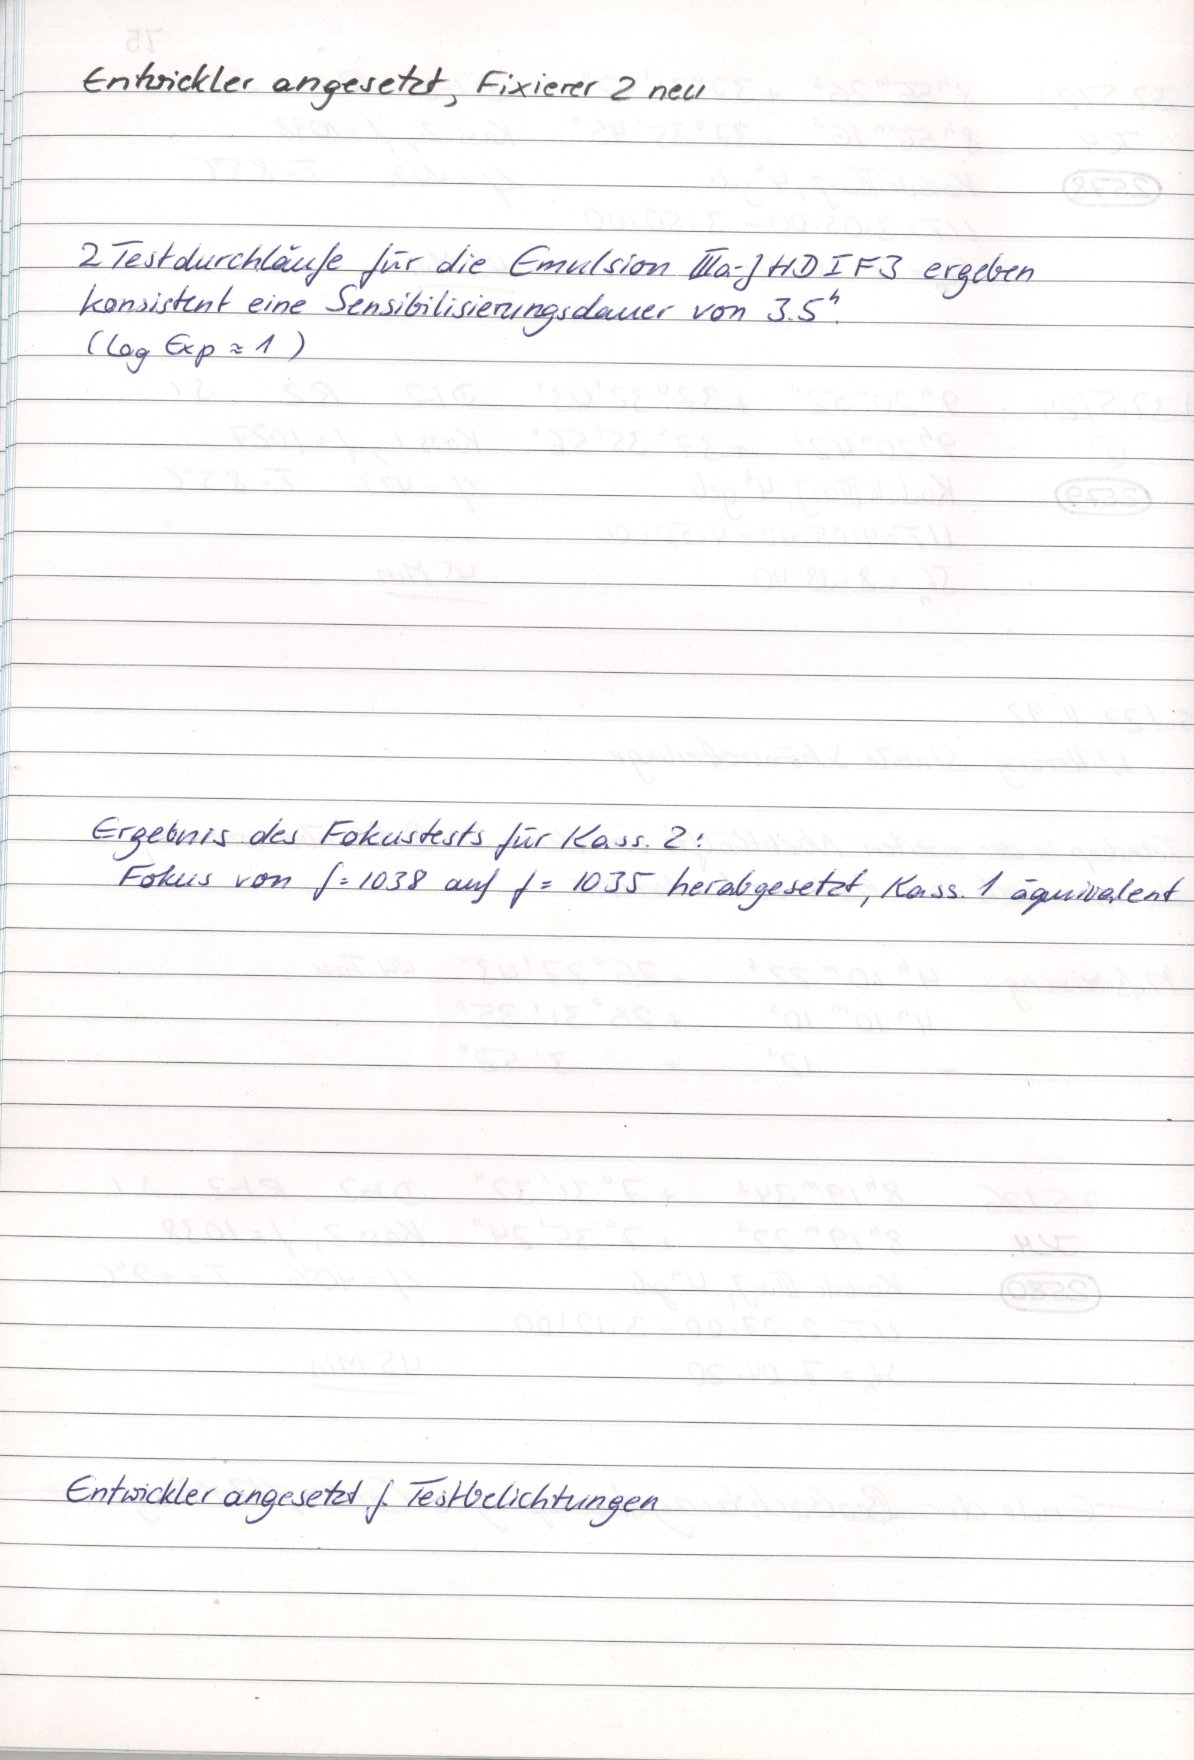 Entwickler angesetzt, Fixierer 2 neu
2 Testdurchläufe für die Emulsion IIIa-J HD I F3 ergeben
konsistent eine Sensibilisierungsdauer von 3.5ʰ.
(log Exp ≈ 1)
Ergebnis des Fokustests für Kass. 2:
Fokus von f = 1038 auf f = 1035 herabgesetzt, Kass. 1 äquivalent
Entwickler angesetzt f. Testbelichtungen